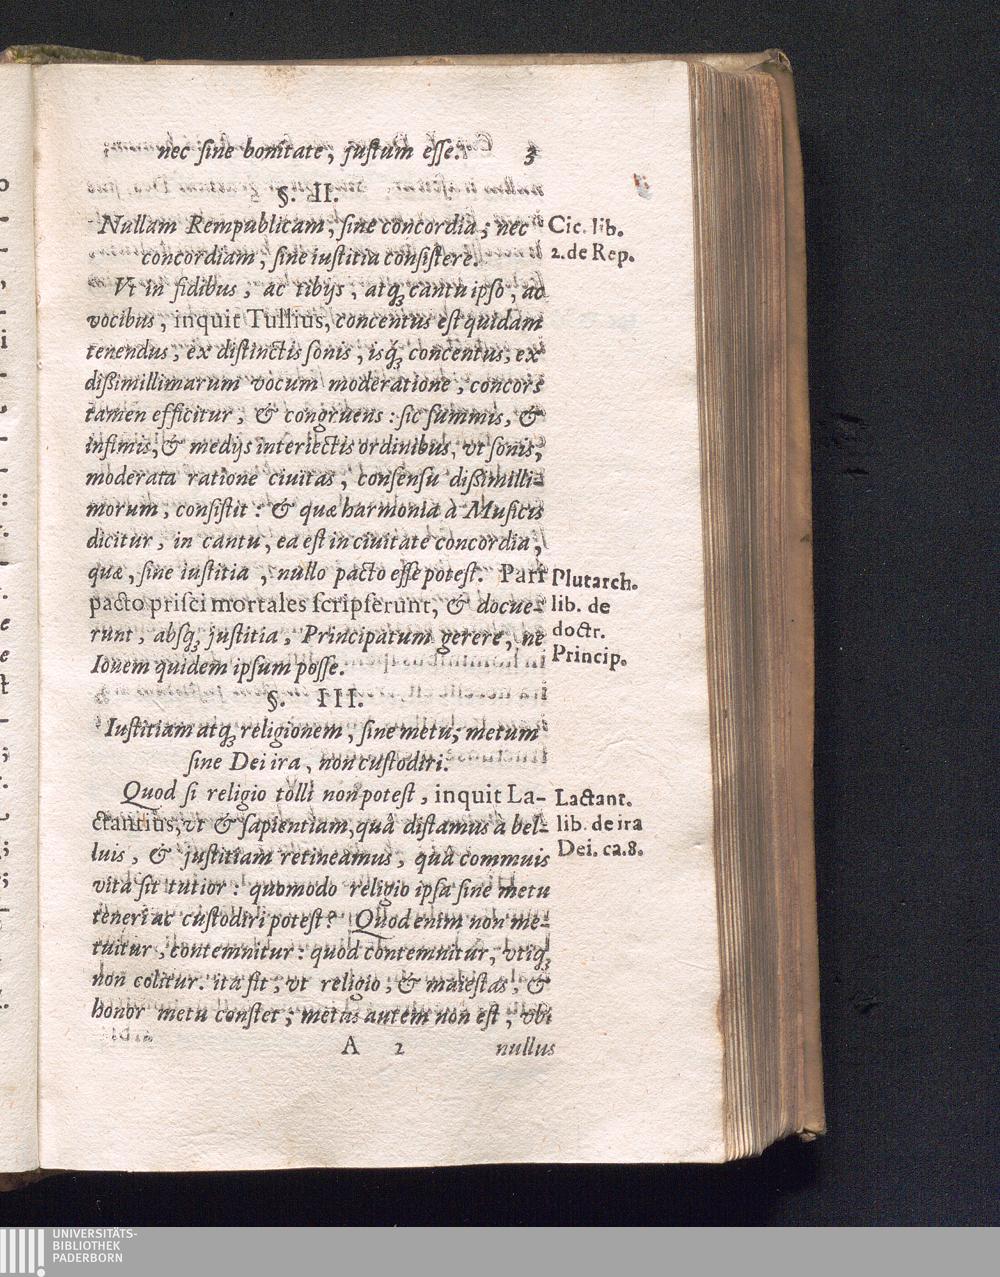 nec ſine bonitate, juſtum eſſe. 3
§. II.
Nullam Rempublicam, ſine concordia; nec
concordiam, ſine iuſtitia conſiſtere.
Cic. lib.
2. de Rep.
Vt in fidibus, ac tibijs, atq; cantu ipſo, ac
vocibus, inquit Tullius, concentus eſt quidam
tenendus, ex diſtinctis ſonis, isq́; concentus, ex
dißimillimarum vocum moderatione, concors
tamen efficitur, & congruens: ſic ſummis, &
infimis, & medijs interiectis ordinibus, vt ſonis,
moderata ratione ciuitas, conſenſu dißimilli-
morum, conſiſtit: & quæ harmonia à Muſicis
dicitur, in cantu, ea eſt in ciuitate concordia,
quæ, ſine iuſtitia, nullo pacto eſſe poteſt. Pari
pacto priſci mortales ſcripſerunt, & docue-
runt, abſq; juſtitia, Principatum gerere, ne
Iouem quidem ipſum poſſe.
Plutarch.
lib. de
doctr.
Princip.
§. III.
Iuſtitiam atq; religionem, ſine metu; metum
ſine Dei ira, non cuſtodiri.
Quod ſi religio tolli non poteſt, inquit La-
ctantius, vt & ſapientiam, quâ diſtamus a bel-
luis, & juſtitiam retineamus, quâ communis
vita ſit tutior: quomodo religio ipſa ſine metu
teneri ac cuſtodiri poteſt? Quod enim non me-
tuitur, contemnitur: quod contemnitur, vtiq;
non colitur. ita fit, vt religio, & maieſtas, &
honor metu conſtet; metus autem non eſt, vbi
Lactant.
lib. de ira
Dei. ca. 8.
A 2 nullus
UNIVERSITÄTS-
BIBLIOTHEK
PADERBORN